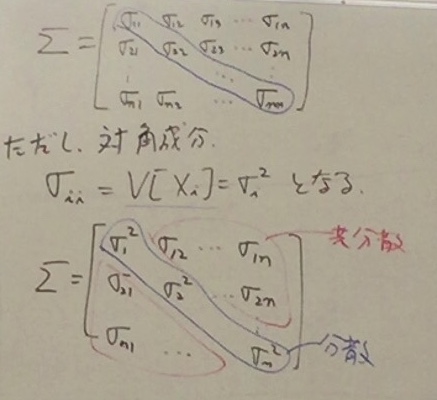 Σ = [ σ11 σ12 σ13 … σ1n
σ21 σ22 σ23 … σ2n
⋮ ⋱ ⋮
σn1 σn2 … σnn ]
ただし、対角成分、
σii = V[Xi] = σi² となる.
共分散
Σ = [ σ1² σ12 … σ1n
σ21 σ2² … σ2n
⋮
σn1 … σn² ]
分散